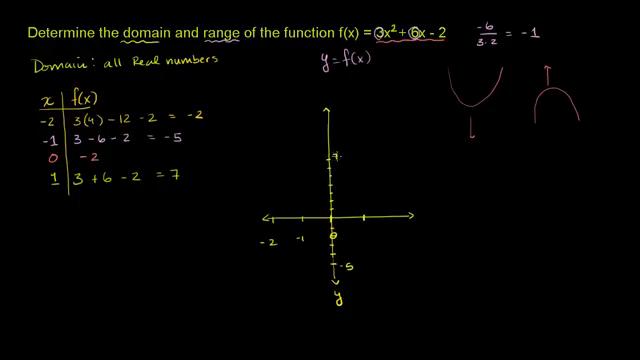 Determine the domain and range of the function f(x) = 3x² + 6x - 2
-6 / 3·2 = -1
Domain: all Real numbers
y = f(x)
x f(x)
-2 3(4) - 12 - 2 = -2
-1 3 - 6 - 2 = -5
0 -2
1 3 + 6 - 2 = 7
7
-2 -1 0
-5
y